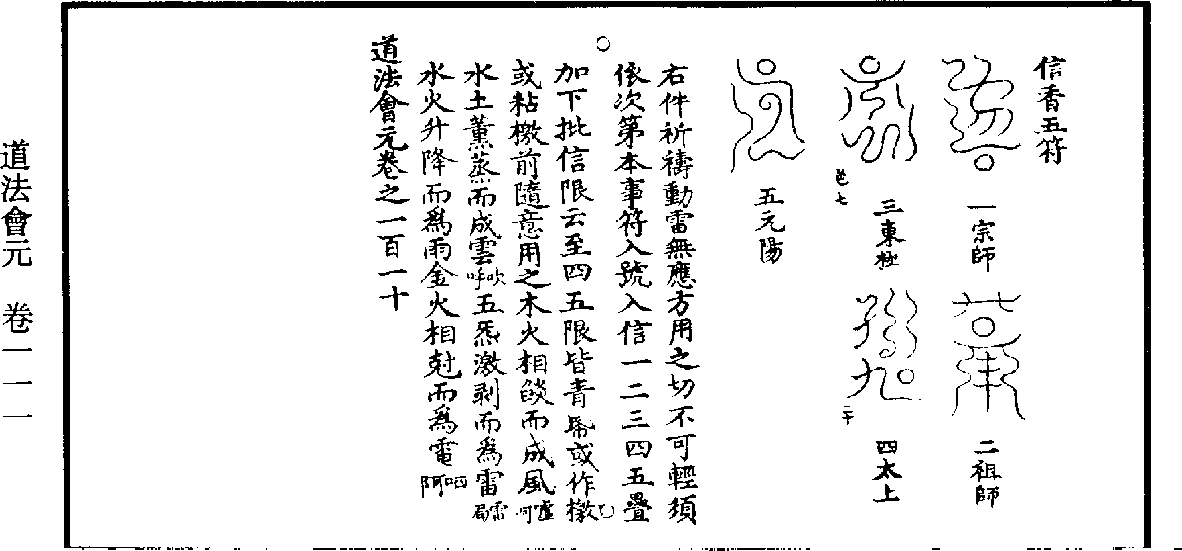 信香五符
一宗師
二祖師
三東極
四太上
五元陽
卷七
二十
右件祈禱動雷無應方用之切不可輕須
依次第本事符入號入信一二三四五疊
加下批信限云至四五限皆青帋或作檄
或粘檄前隨意用之木火相燄而成風噓呵
水土薰蒸而成雲吹呼五炁激剥而爲雷雷局
水火升降而爲雨金火相尅而爲電呬阿
道法會元卷之一百一十
道法會元 卷一一一